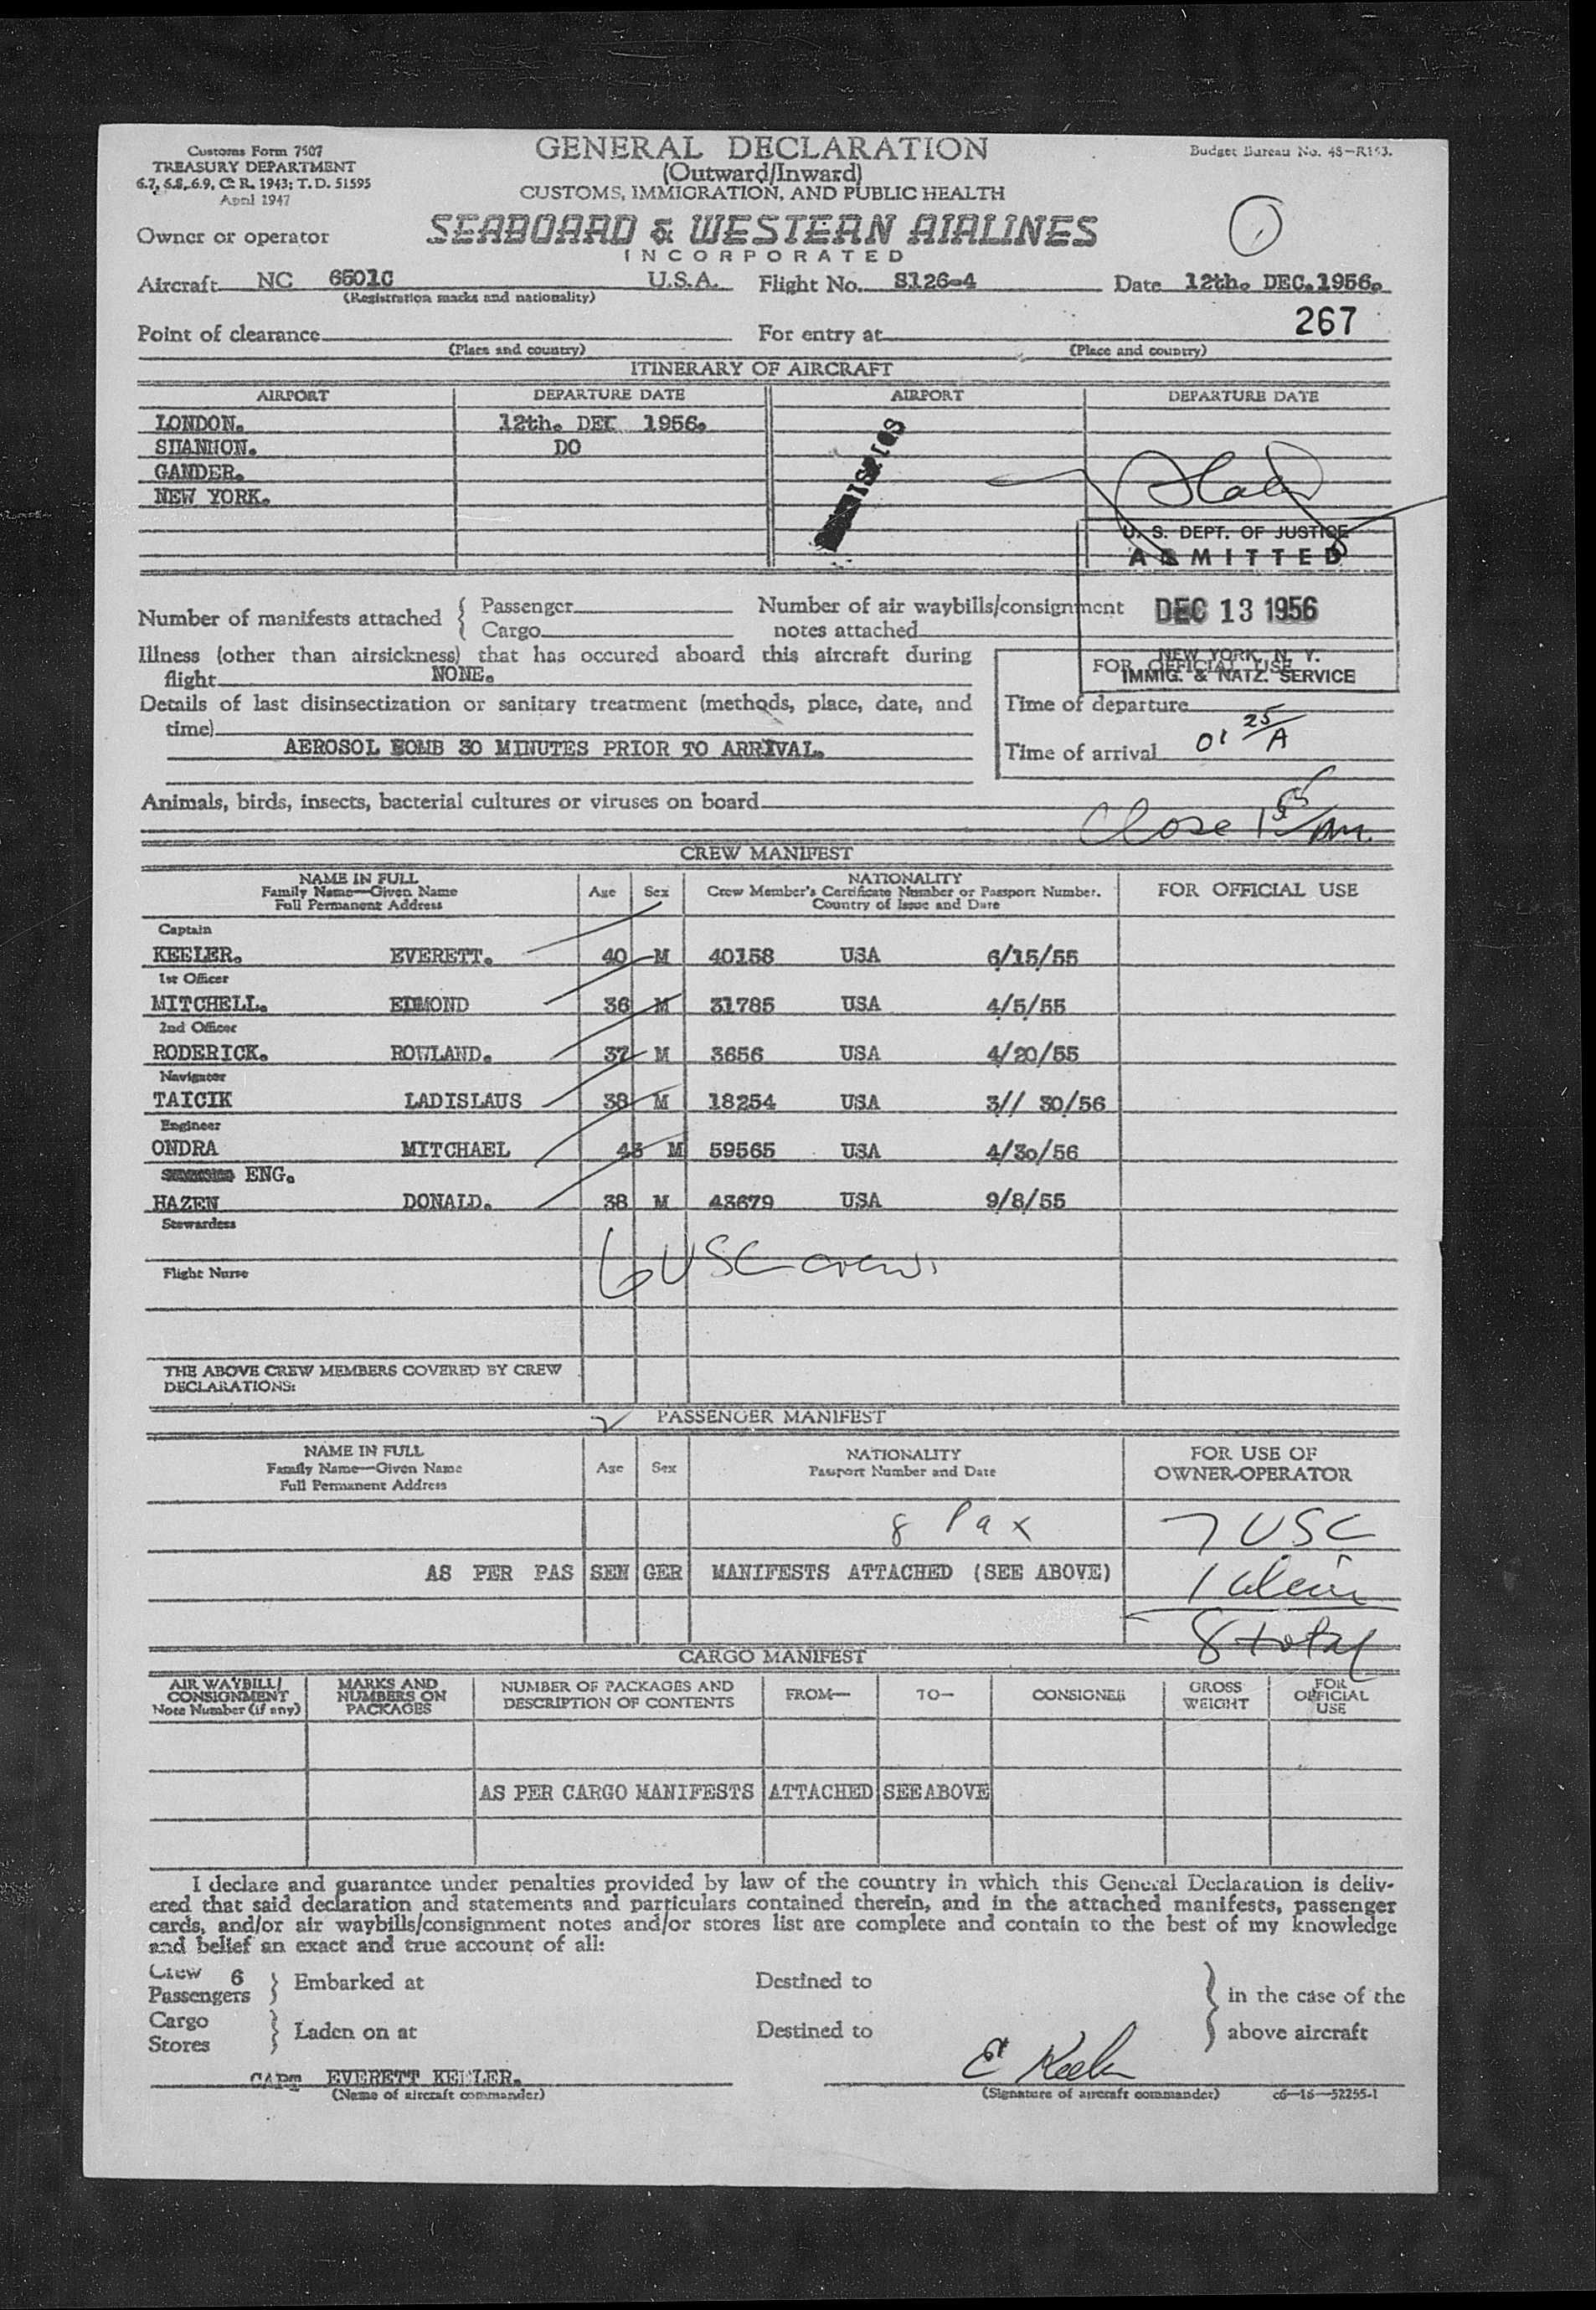 Customs Form 7507
TREASURY DEPARTMENT
6.7, 6.8, 6.9, C. R. 1943; T. D. 51595
April 1947
GENERAL DECLARATION
(Outward/Inward)
CUSTOMS, IMMIGRATION, AND PUBLIC HEALTH
Budget Bureau No. 48—R153.
Owner or operator
SEABOARD & WESTERN AIRLINES
INCORPORATED
1
Aircraft NC 6501C U.S.A. Flight No. S126-4 Date 12th. DEC.1956.
(Registration marks and nationality)
267
Point of clearance For entry at
(Place and country) (Place and country)
ITINERARY OF AIRCRAFT
AIRPORT DEPARTURE DATE AIRPORT DEPARTURE DATE
LONDON. 12th. DEC 1956.
SHANNON. DO
GANDER.
NEW YORK.
U. S. DEPT. OF JUSTICE
ADMITTED
DEC 13 1956
NEW YORK, N. Y.
IMMIG. & NATZ. SERVICE
Number of manifests attached { Passenger
Cargo
Number of air waybills/consignment
notes attached
Illness (other than airsickness) that has occured aboard this aircraft during
flight NONE.
FOR OFFICIAL USE
Details of last disinsectization or sanitary treatment (methods, place, date, and
time)
AEROSOL BOMB 30 MINUTES PRIOR TO ARRIVAL.
Time of departure
Time of arrival 01 25/A
Animals, birds, insects, bacterial cultures or viruses on board
Close 1 55/AM.
CREW MANIFEST
NAME IN FULL
Family Name—Given Name
Full Permanent Address
Age Sex
NATIONALITY
Crew Member's Certificate Number or Passport Number.
Country of Issue and Date
FOR OFFICIAL USE
Captain
KEELER. EVERETT. 40 M 40158 USA 6/15/55
1st Officer
MITCHELL. EDMOND 36 M 31785 USA 4/5/55
2nd Officer
RODERICK. ROWLAND. 37 M 3656 USA 4/20/55
Navigator
TAICIK LADISLAUS 38 M 18254 USA 3// 30/56
Engineer
ONDRA MITCHAEL 43 M 59565 USA 4/30/56
ENG.
HAZEN DONALD. 38 M 43679 USA 9/8/55
Stewardess
6 USC crew
Flight Nurse
THE ABOVE CREW MEMBERS COVERED BY CREW
DECLARATIONS:
PASSENGER MANIFEST
NAME IN FULL
Family Name—Given Name
Full Permanent Address
Age Sex
NATIONALITY
Passport Number and Date
FOR USE OF
OWNER-OPERATOR
8 Pax 7 USC
AS PER PAS SEN GER MANIFESTS ATTACHED (SEE ABOVE) 1 alien
8 total
CARGO MANIFEST
AIR WAYBILL/
CONSIGNMENT
Note Number (if any)
MARKS AND
NUMBERS ON
PACKAGES
NUMBER OF PACKAGES AND
DESCRIPTION OF CONTENTS
FROM— TO— CONSIGNEE
GROSS
WEIGHT
FOR
OFFICIAL
USE
AS PER CARGO MANIFESTS ATTACHED SEE ABOVE
I declare and guarantee under penalties provided by law of the country in which this General Declaration is deliv-
ered that said declaration and statements and particulars contained therein, and in the attached manifests, passenger
cards, and/or air waybills/consignment notes and/or stores list are complete and contain to the best of my knowledge
and belief an exact and true account of all:
Crew 6
Passengers } Embarked at Destined to
Cargo
Stores } Laden on at Destined to
} in the case of the
above aircraft
CAPT EVERETT KEELER. E Keeler
(Name of aircraft commander) (Signature of aircraft commander) c6—16—52255-1